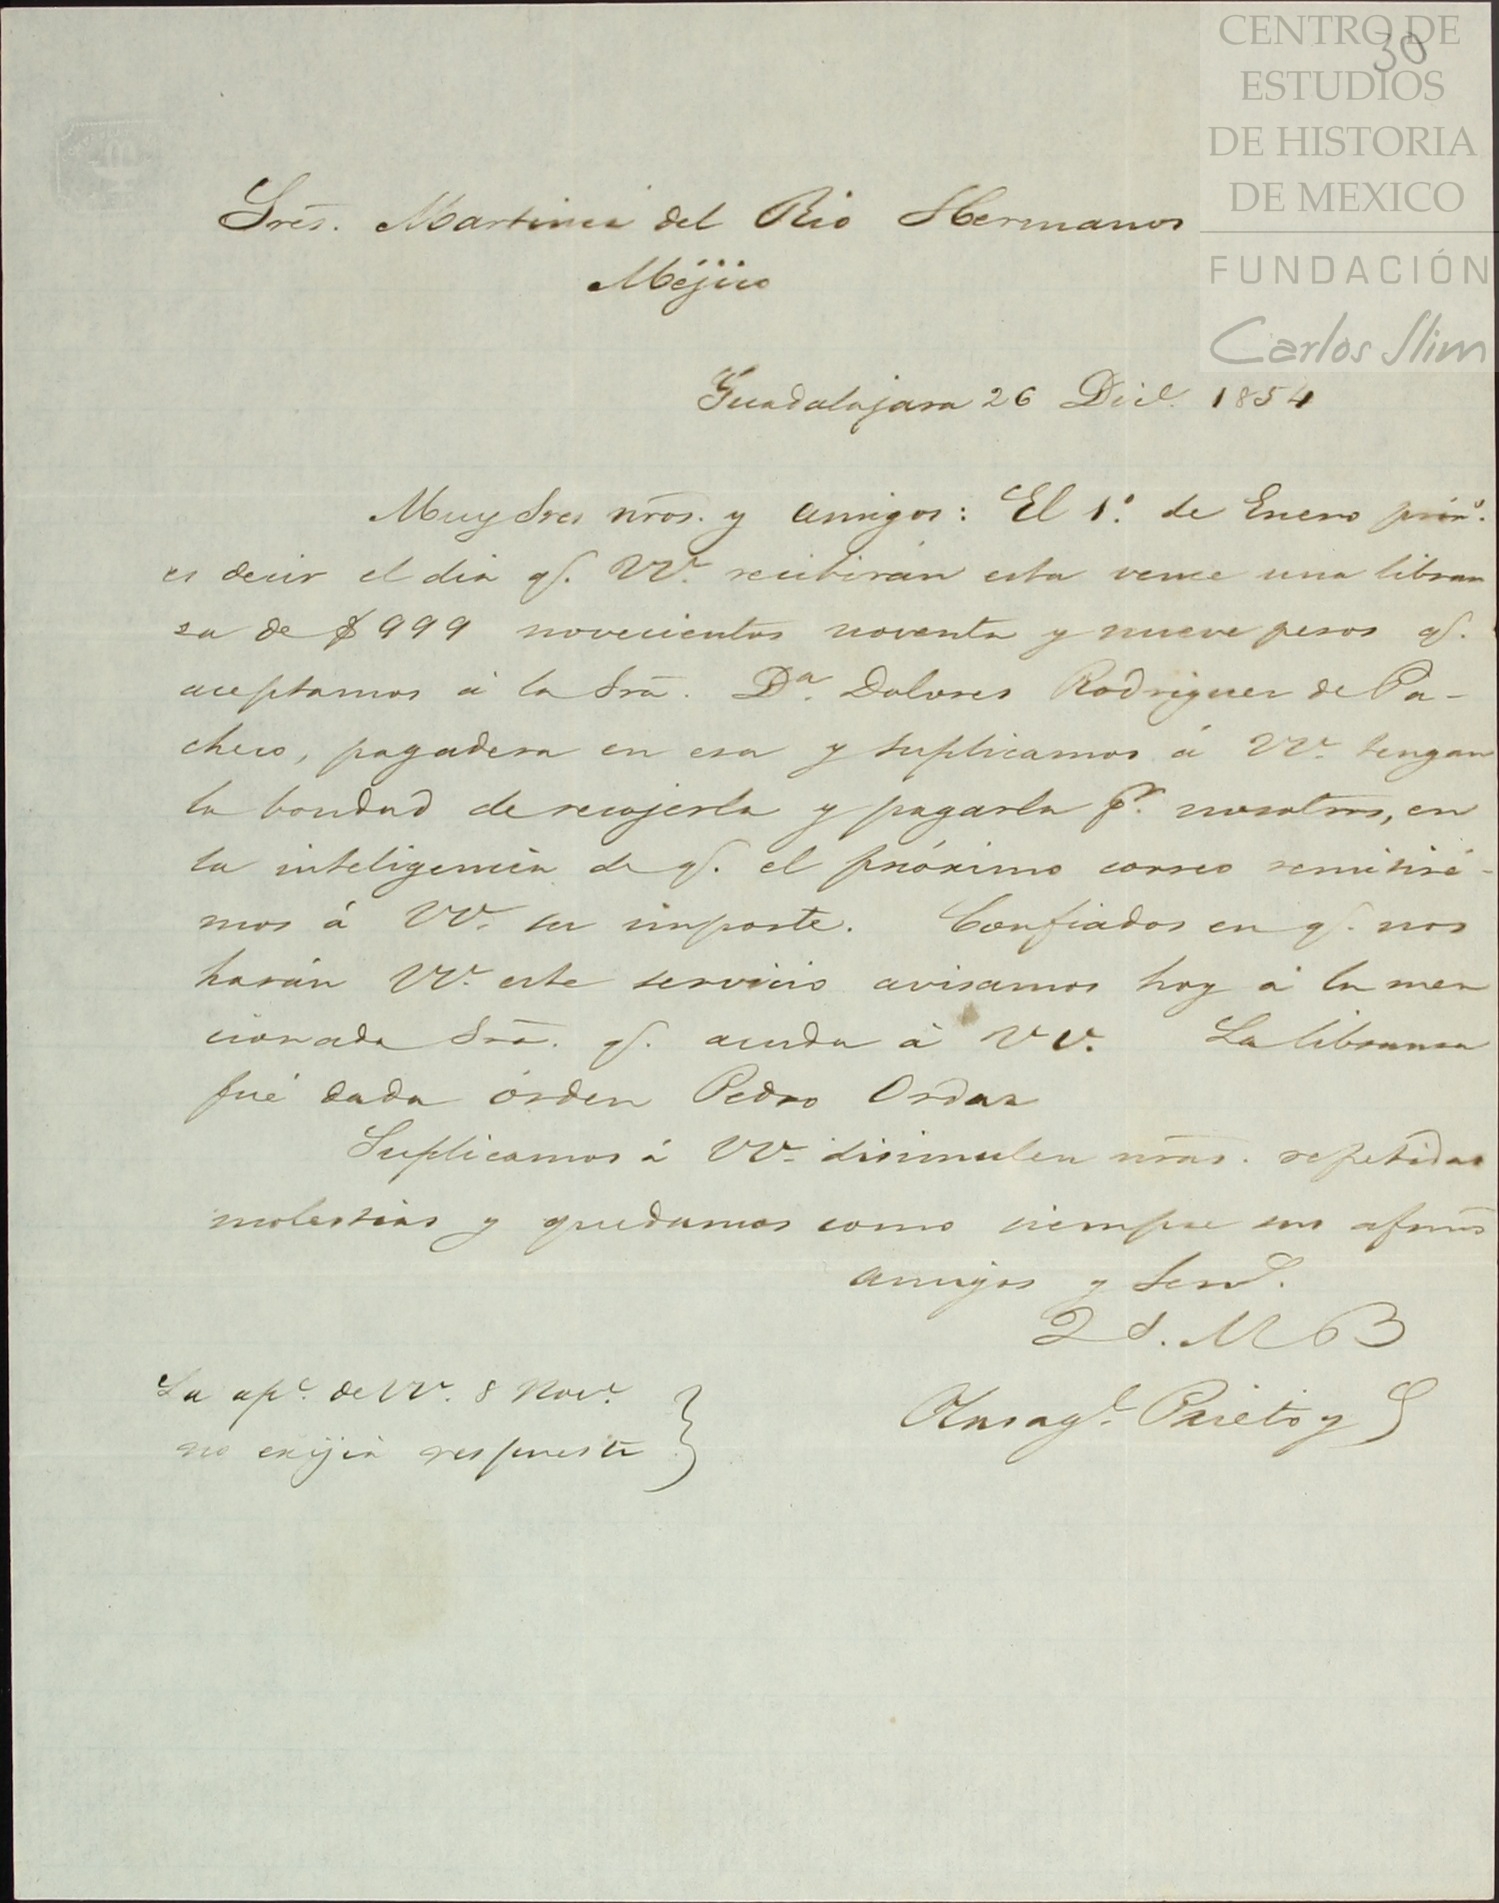 CENTRO DE
ESTUDIOS
DE HISTORIA
DE MEXICO
FUNDACIÓN
Carlos Slim
30
Sres. Martinez del Rio Hermanos
Méjico
Guadalajara 26 Dice. 1854
Muy Sres nros. y amigos: El 1º. de Enero próxº.
es decir el dia q. VV. recibirán esta vence una libran
za de $ 999 novecientos noventa y nueve pesos q.
aceptamos á la Sra. Da. Dolores Rodriguez de Pa-
checo, pagadera en esa y suplicamos á VV. tengan
la bondad de recojerla y pagarla pr. nosotros, en
la inteligencia de q. el próximo correo remitiré-
mos á VV. su importe. Confiados en q. nos
harán VV. este servicio avisamos hoy á la men
cionada Sra. q. acuda á VV. La libranza
fué dada órden Pedro Ordaz
Suplicamos á VV. disimulen nras. repetidas
molestias y quedamos como siempre sus afmos
amigos y Serv.
Q S. M B
La apc. de VV. 8 Nove.
no exijia respuesta
Prieto y